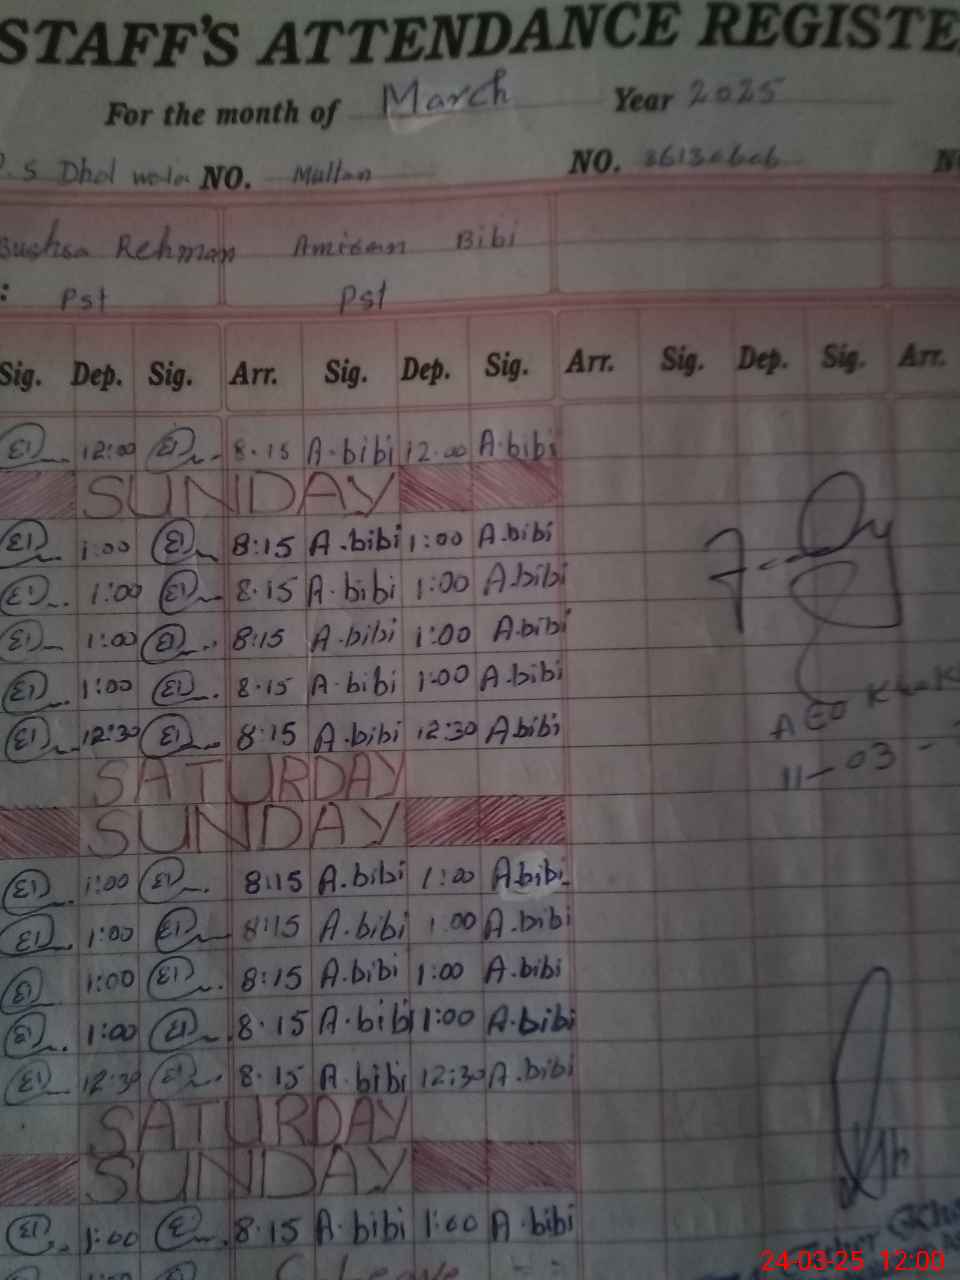 STAFF'S ATTENDANCE REGISTE
For the month of March Year 2025
S Dhol wala NO. Multan NO.
Rehman Bibi
: Pst Pst
Sig. Dep. Sig. Arr. Sig. Dep. Sig. Arr. Sig. Dep. Sig. Arr.
12:00 8.15 A.bibi 12.00 A.bibi
SUNDAY
1:00 8:15 A.bibi 1:00 A.bibi
1:00 8.15 A.bibi 1:00 A.bibi
1:00 8:15 A.bibi 1:00 A.bibi
1:00 8.15 A.bibi 1:00 A.bibi
12:30 8:15 A.bibi 12:30 A.bibi
AEO
SATURDAY
11-03-
SUNDAY
1:00 8:15 A.bibi 1:00 A.bibi
1:00 8:15 A.bibi 1:00 A.bibi
1:00 8:15 A.bibi 1:00 A.bibi
1:00 8.15 A.bibi 1:00 A.bibi
12:30 8.15 A.bibi 12:30 A.bibi
SATURDAY
SUNDAY
1:00 8.15 A.bibi 1:00 A.bibi
24-03-25 12:00